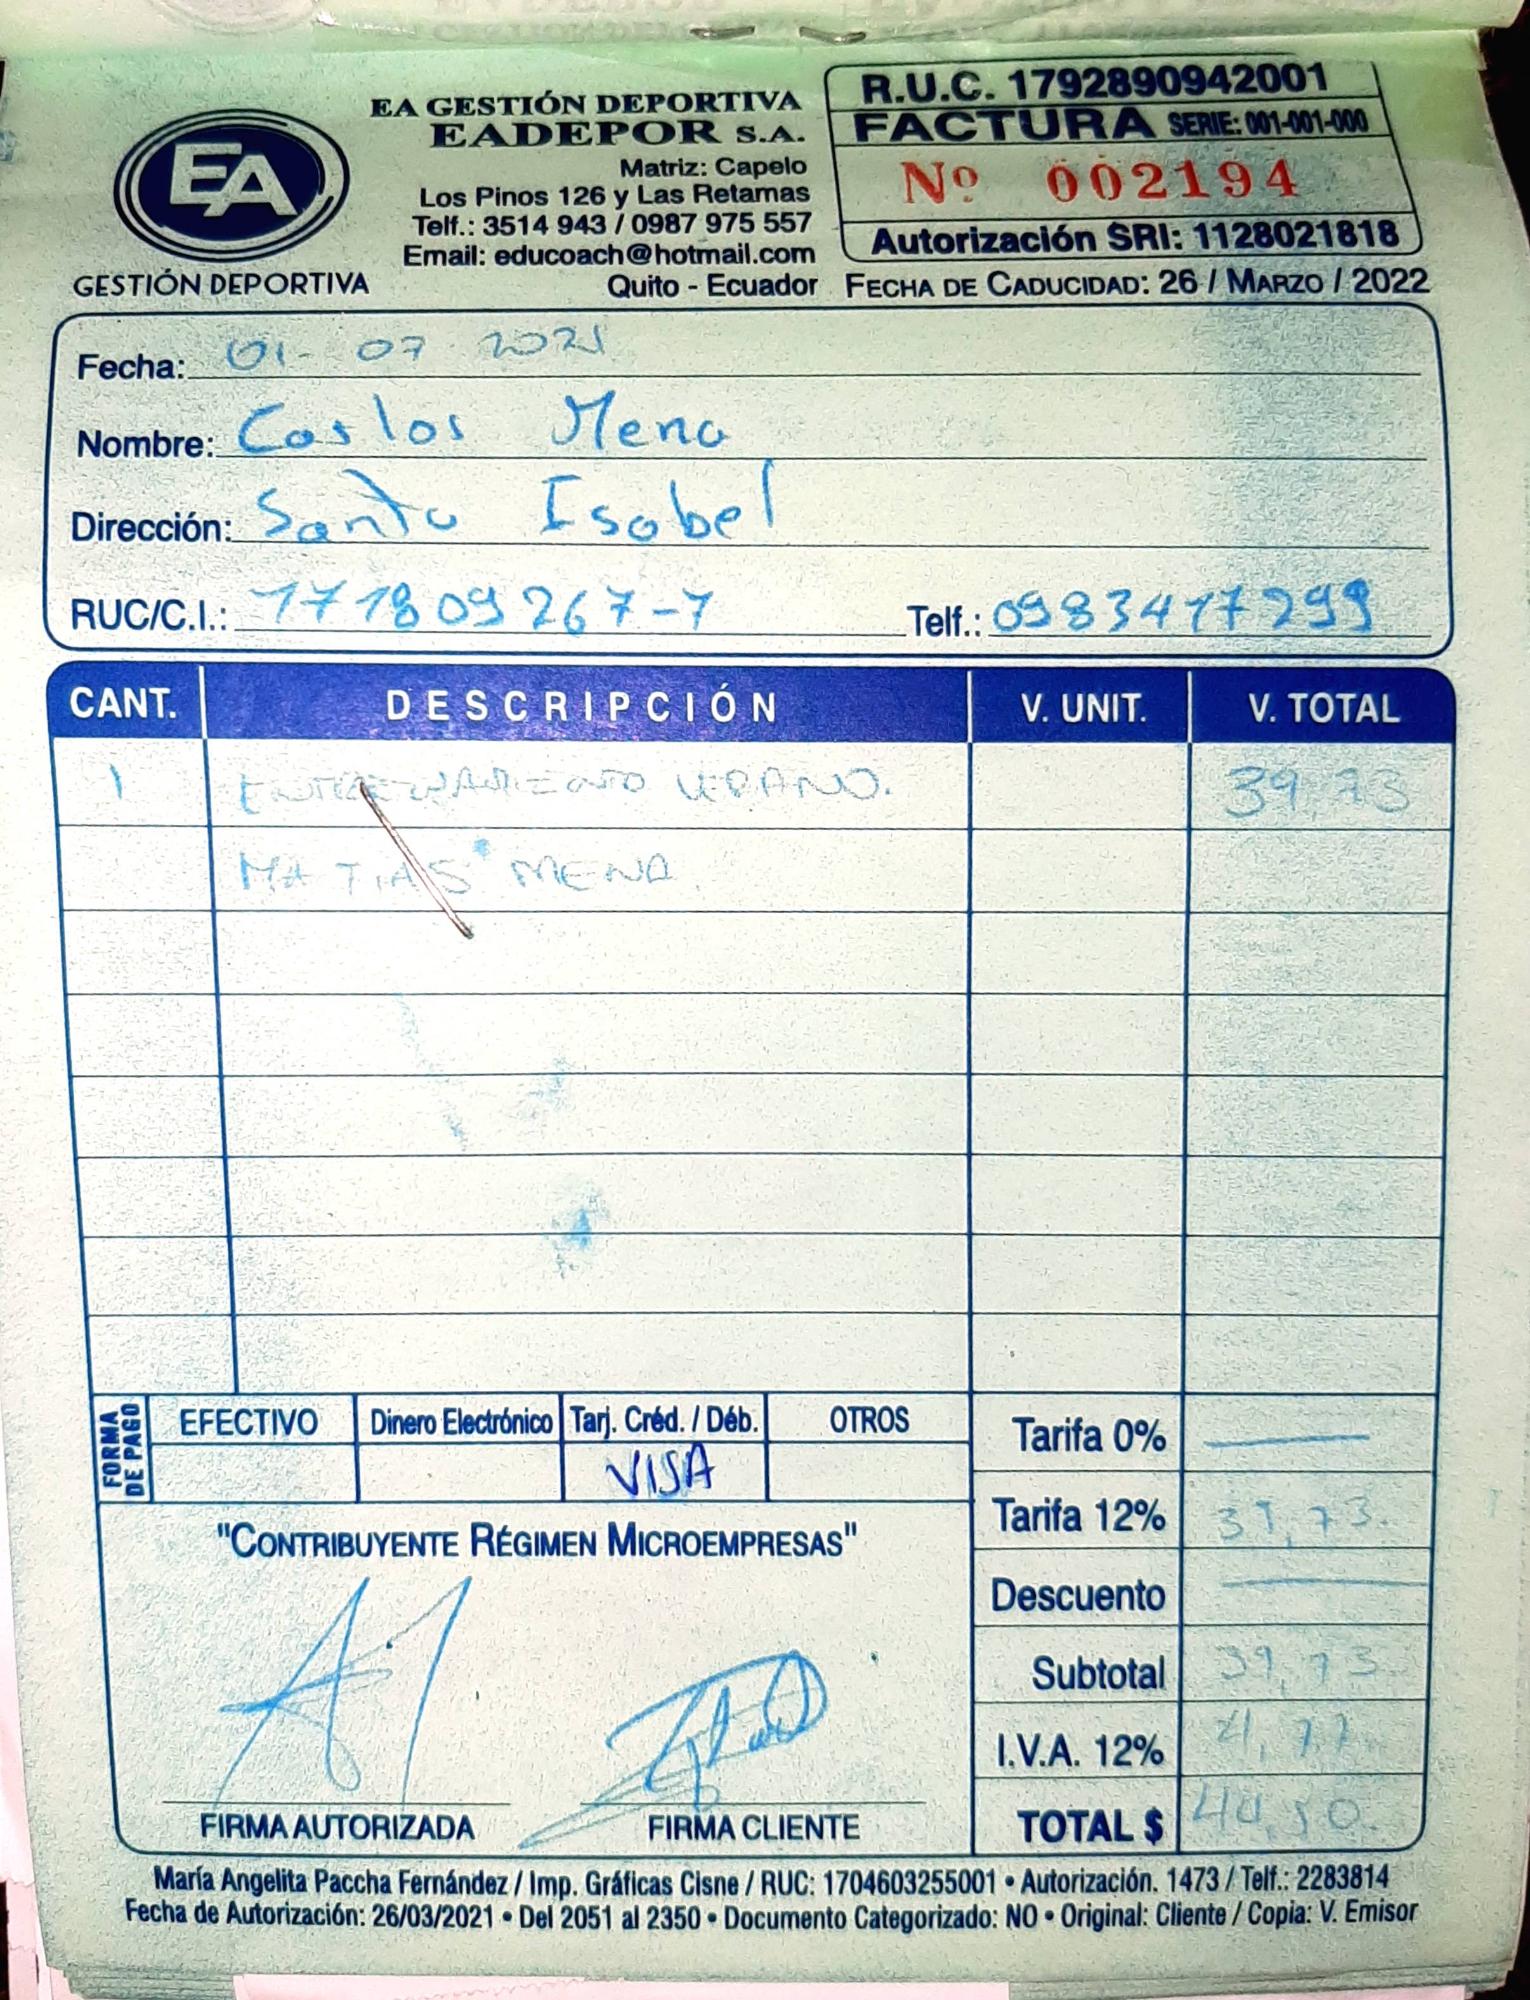 EA GESTIÓN DEPORTIVA
EADEPOR S.A.
Matriz: Capelo
Los Pinos 126 y Las Retamas
Telf.: 3514 943 / 0987 975 557
Email: educoach@hotmail.com
Quito - Ecuador
EA
GESTIÓN DEPORTIVA
R.U.C. 1792890942001
FACTURA SERIE: 001-001-000
Nº 002194
Autorización SRI: 1128021818
FECHA DE CADUCIDAD: 26 / MARZO / 2022
Fecha: 01-07-2021
Nombre: Carlos Mena
Dirección: Santa Isabel
RUC/C.I.: 171809267-7 Telf.: 0983417299
CANT. DESCRIPCIÓN V. UNIT. V. TOTAL
1 ENTRENAMIENTO VERANO. 39,73
MATIAS MENA.
FORMA DE PAGO
EFECTIVO Dinero Electrónico Tarj. Créd. / Déb. OTROS
VISA
Tarifa 0%
Tarifa 12% 39,73.
Descuento
Subtotal 39,73
I.V.A. 12% 4,77
TOTAL $ 44,50
"CONTRIBUYENTE RÉGIMEN MICROEMPRESAS"
FIRMA AUTORIZADA FIRMA CLIENTE
María Angelita Paccha Fernández / Imp. Gráficas Cisne / RUC: 1704603255001 • Autorización. 1473 / Telf.: 2283814
Fecha de Autorización: 26/03/2021 • Del 2051 al 2350 • Documento Categorizado: NO • Original: Cliente / Copia: V. Emisor